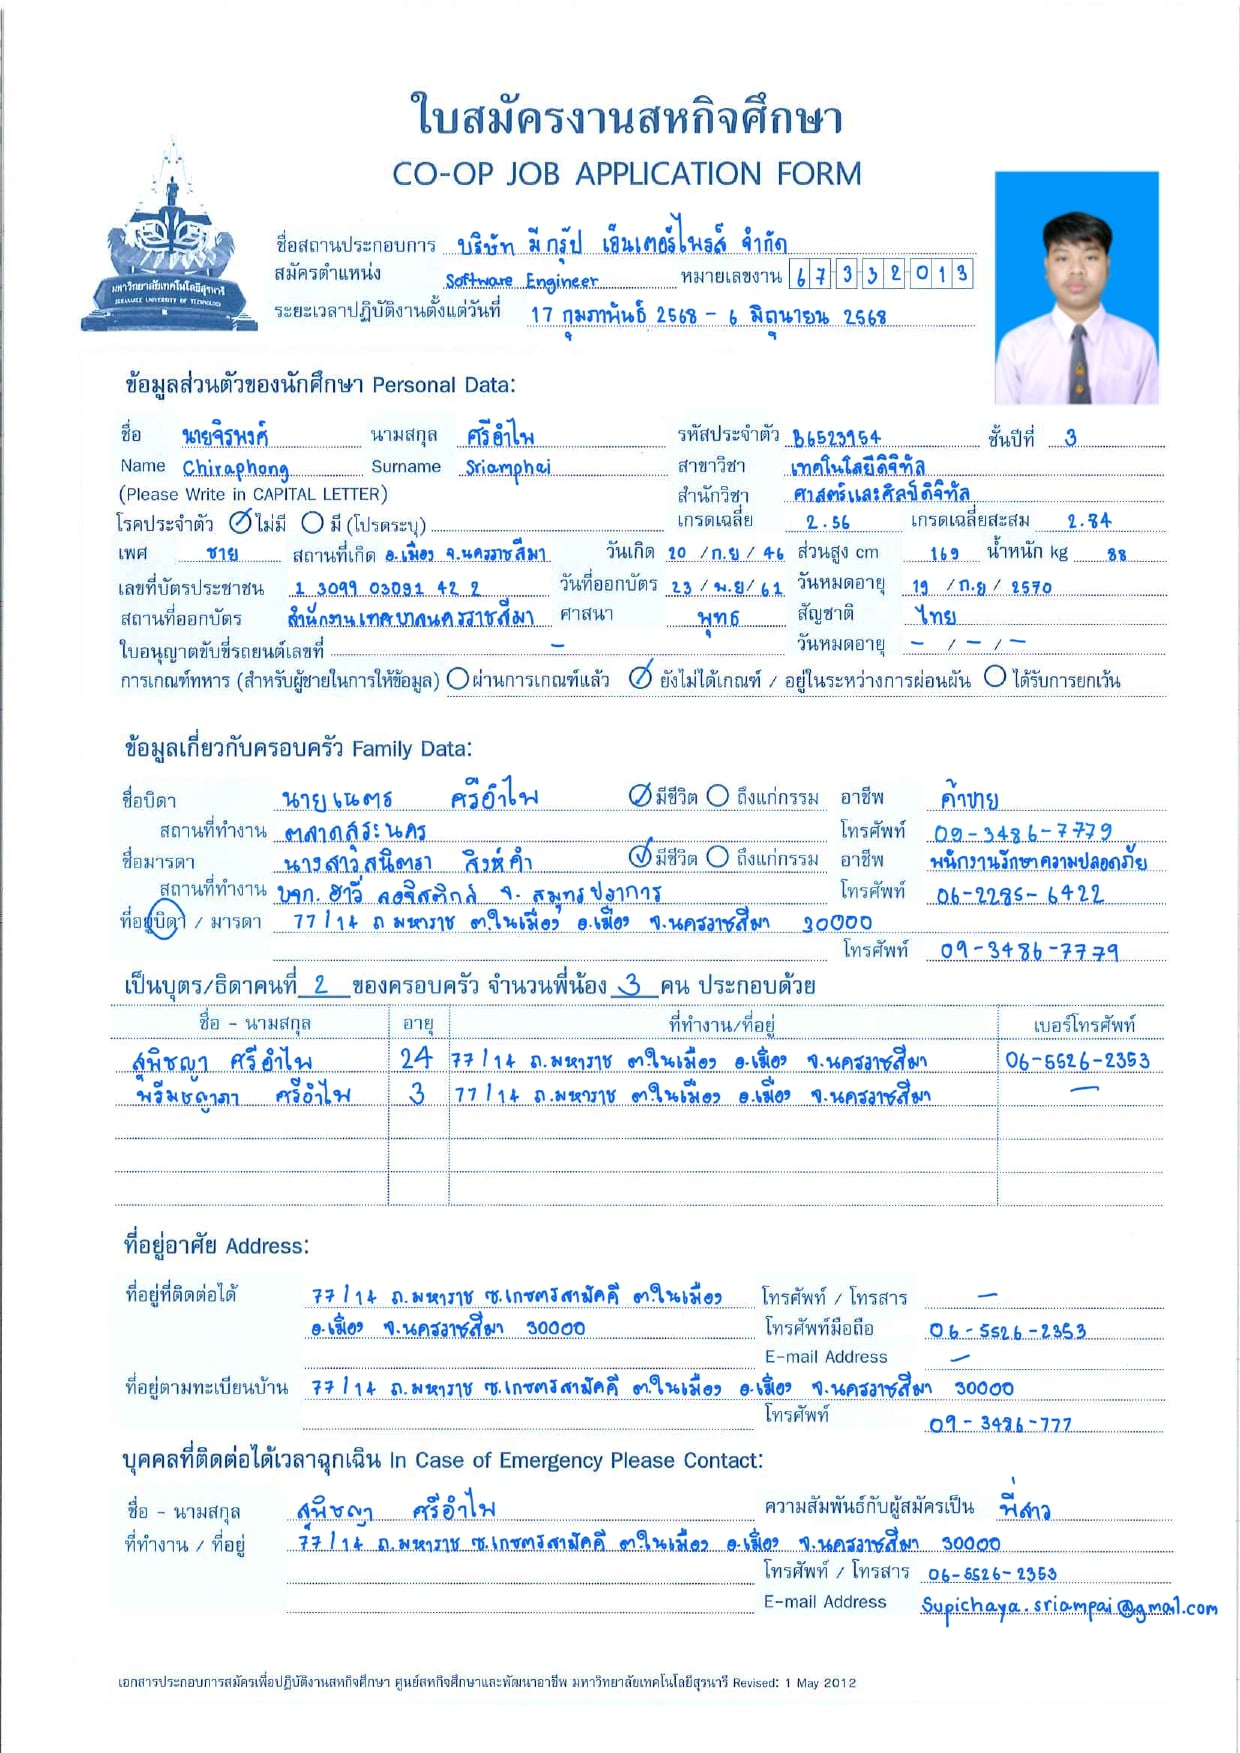 ใบสมัครงานสหกิจศึกษา
CO-OP JOB APPLICATION FORM
มหาวิทยาลัยเทคโนโลยีสุรนารี
SURANAREE UNIVERSITY OF TECHNOLOGY
ชื่อสถานประกอบการ บริษัท มี กรุ๊ป เอ็นเตอร์ไพรส์ จำกัด
สมัครตำแหน่ง Software Engineer หมายเลขงาน 67332013
ระยะเวลาปฏิบัติงานตั้งแต่วันที่ 17 กุมภาพันธ์ 2568 - 6 มิถุนายน 2568
ข้อมูลส่วนตัวของนักศึกษา Personal Data:
ชื่อ นายจิรพงศ์ นามสกุล ศรีอำไพ รหัสประจำตัว B6523954 ชั้นปีที่ 3
Name Chiraphong Surname Sriamphai สาขาวิชา เทคโนโลยีดิจิทัล
(Please Write in CAPITAL LETTER) สำนักวิชา ศาสตร์และศิลป์ดิจิทัล
โรคประจำตัว ไม่มี มี (โปรดระบุ) เกรดเฉลี่ย 2.56 เกรดเฉลี่ยสะสม 2.84
เพศ ชาย สถานที่เกิด อ.เมือง จ.นครราชสีมา วันเกิด 20 / ก.ย / 46 ส่วนสูง cm 169 น้ำหนัก kg 88
เลขที่บัตรประชาชน 1 3099 03091 42 2 วันที่ออกบัตร 23 / พ.ย / 61 วันหมดอายุ 19 / ก.ย / 2570
สถานที่ออกบัตร สำนักงานเทศบาลนครราชสีมา ศาสนา พุทธ สัญชาติ ไทย
ใบอนุญาตขับขี่รถยนต์เลขที่ - วันหมดอายุ - / - / -
การเกณฑ์ทหาร (สำหรับผู้ชายในการให้ข้อมูล) ผ่านการเกณฑ์แล้ว ยังไม่ได้เกณฑ์ / อยู่ในระหว่างการผ่อนผัน ได้รับการยกเว้น
ข้อมูลเกี่ยวกับครอบครัว Family Data:
ชื่อบิดา นายเนตร ศรีอำไพ มีชีวิต ถึงแก่กรรม อาชีพ ค้าขาย
สถานที่ทำงาน ตลาดสุรนคร โทรศัพท์ 09-3486-7779
ชื่อมารดา นางสาวสนิตรา สิงห์คำ มีชีวิต ถึงแก่กรรม อาชีพ พนักงานรักษาความปลอดภัย
สถานที่ทำงาน บจก. ฮาวี่ ลอจิสติกส์ จ. สมุทรปราการ โทรศัพท์ 06-2285-6422
ที่อยู่บิดา / มารดา 77/14 ถ มหาราช ต.ในเมือง อ.เมือง จ.นครราชสีมา 30000
โทรศัพท์ 09-3486-7779
เป็นบุตร/ธิดาคนที่ 2 ของครอบครัว จำนวนพี่น้อง 3 คน ประกอบด้วย
ชื่อ - นามสกุล อายุ ที่ทำงาน/ที่อยู่ เบอร์โทรศัพท์
สุพิชญา ศรีอำไพ 24 77/14 ถ.มหาราช ต.ในเมือง อ.เมือง จ.นครราชสีมา 06-5526-2353
พรีมชญาภา ศรีอำไพ 3 77/14 ถ.มหาราช ต.ในเมือง อ.เมือง จ.นครราชสีมา -
ที่อยู่อาศัย Address:
ที่อยู่ที่ติดต่อได้ 77/14 ถ.มหาราช ซ.เกษตรสามัคคี ต.ในเมือง โทรศัพท์ / โทรสาร -
อ.เมือง จ.นครราชสีมา 30000 โทรศัพท์มือถือ 06-5526-2353
E-mail Address -
ที่อยู่ตามทะเบียนบ้าน 77/14 ถ.มหาราช ซ.เกษตรสามัคคี ต.ในเมือง อ.เมือง จ.นครราชสีมา 30000
โทรศัพท์ 09-3486-777
บุคคลที่ติดต่อได้เวลาฉุกเฉิน In Case of Emergency Please Contact:
ชื่อ - นามสกุล สุพิชญา ศรีอำไพ ความสัมพันธ์กับผู้สมัครเป็น พี่สาว
ที่ทำงาน / ที่อยู่ 77/14 ถ.มหาราช ซ.เกษตรสามัคคี ต.ในเมือง อ.เมือง จ.นครราชสีมา 30000
โทรศัพท์ / โทรสาร 06-5526-2353
E-mail Address Supichaya.sriampai@gmail.com
เอกสารประกอบการสมัครเพื่อปฏิบัติงานสหกิจศึกษา ศูนย์สหกิจศึกษาและพัฒนาอาชีพ มหาวิทยาลัยเทคโนโลยีสุรนารี Revised: 1 May 2012